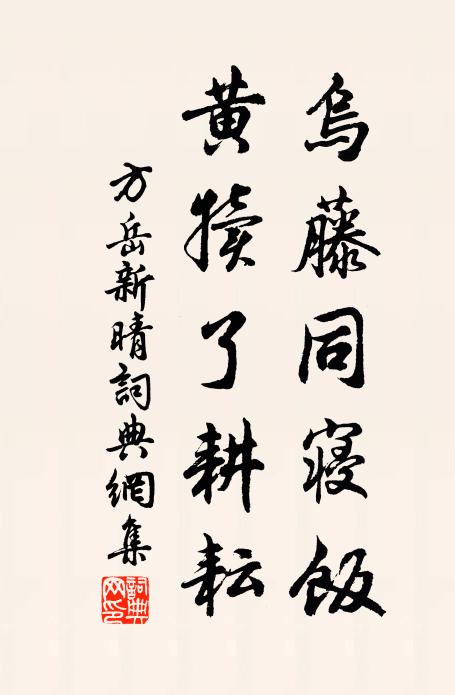 烏藤同寝飯
黃犢了耕耘
方岳新晴詞典網集
詞典網印